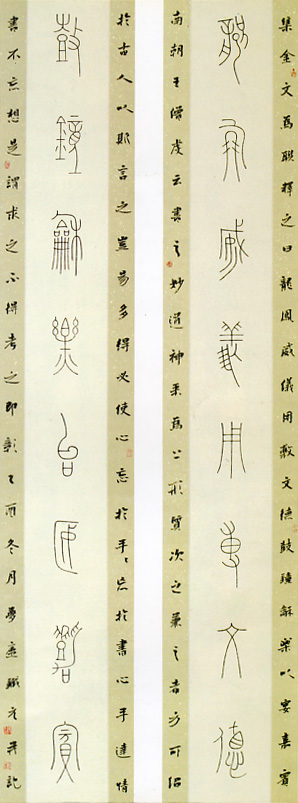 集金文為聯釋之曰龍鳳威儀用敷文德鼓鐘龢樂以宴嘉賓
龍鳳威義用尃文德
南朝王僧虔云書之妙道神采為上形質次之兼之者方可紹
於古人以斯言之豈易多得必使心忘於手手忘於書心手達情
鼓鐘龢樂台匽嘉賓
書不忘想是謂求之不得考之即彰乙酉冬月夢并記